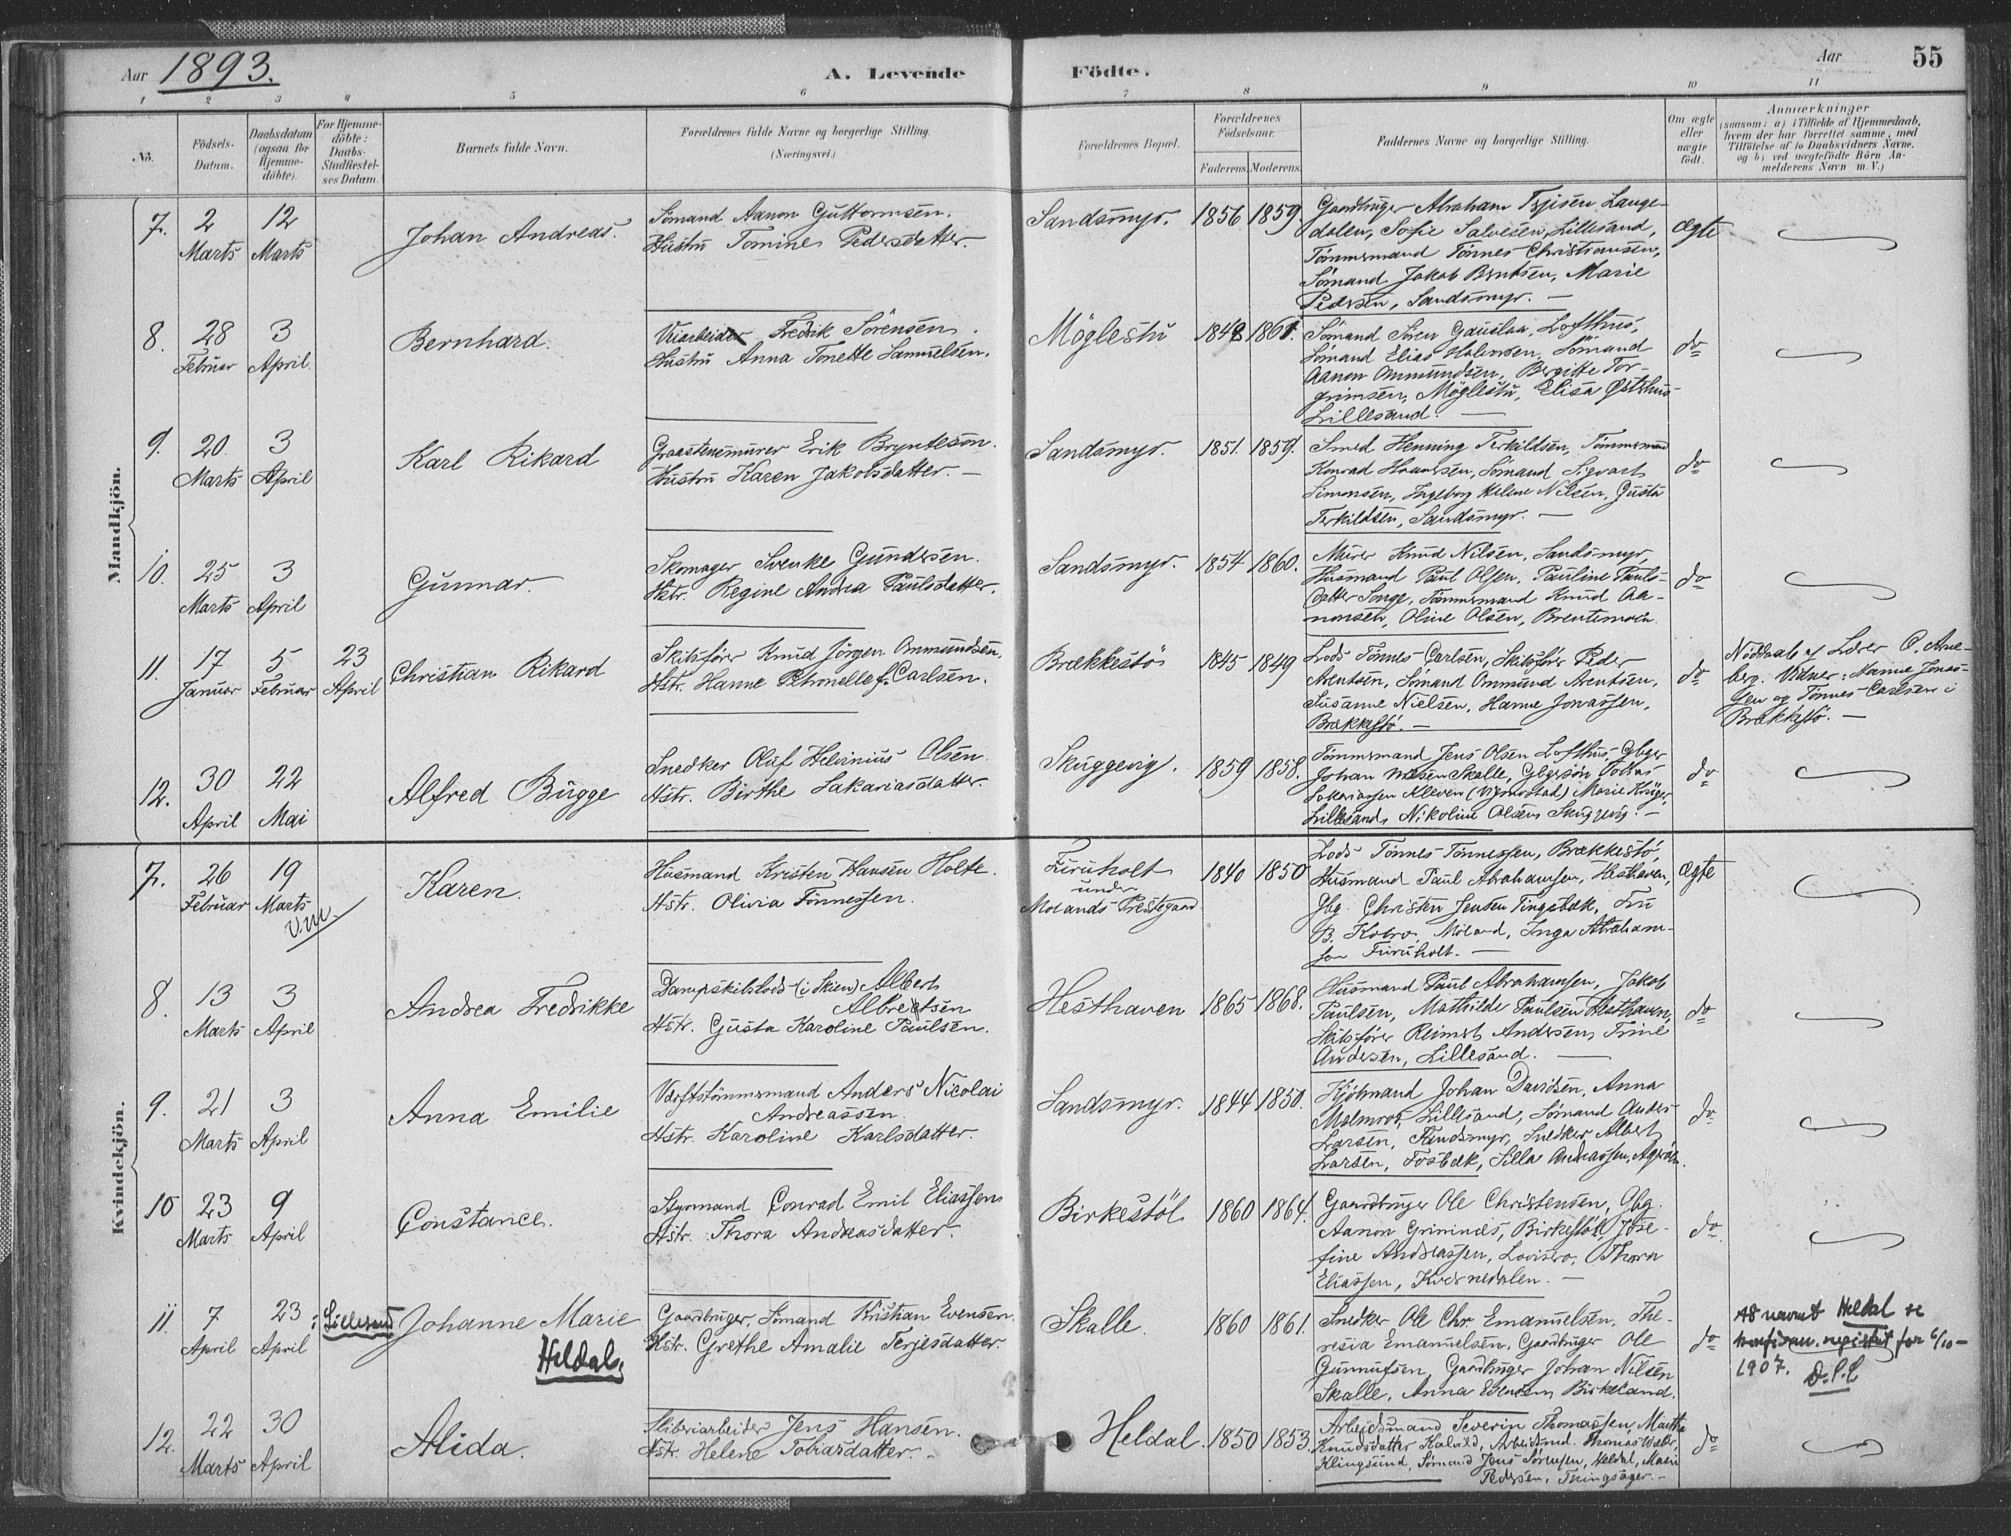 Aar 1893. A. Levende Födte. Aar 55
1 2 3 4 5 6 7 8 9 10 11
No.
Födsels-
Datum.
Daabsdatum
(ogsaa for
Hjemme-
döbte).
For Hjemme-
döbte:
Daabs-
Stadfæstel-
ses Datum.
Barnets fulde Navn.
Forældrenes fulde Navne og borgerlige Stilling.
(Næringsvei.)
Forældrenes Bopæl.
Forældrenes
Födselsaar.
Faderens. Moderens.
Faddernes Navne og borgerlige Stilling.
Om ægte
eller
uægte
födt.
Anmærkninger
(saasom: a) i Tilfælde af Hjemmedaab,
hvem der har forrettet samme, med
Tilföielse af to Daabsvidners Navne.
og b) ved uægtefödte Börn An-
melderens Navn m. V.)
Mandkjön.
7. 2 Marts
12 Marts
Johan Andreas.
Sömand Aanon Guttormsen.
Hustru Tomine Pedersdatter.
Sandsmyr. 1856 1859.
Gaardbruger Abraham Terjesen Lange-
dalen, Sofie Salvesen, Lillesand,
Tömmermand Tönnes Christiansen,
Sömand Jakob Bentsen, Marie
Pedersen, Sandsmyr. —
Ægte
8. 28 Februar
3 April.
Bernhard.
Fredrik Sörensen.
Hustru Anna Tonette Samuelsen.
Möglestu 1848 1861.
Sömand Sören Gauslaa, Lofthus,
Sömand Elias Halvorsen, Sömand
Aanon Ommundsen, Bergitte Tor-
grimsen, Möglestu, Elisa Østehus
Lillesand. —
do
9. 20. Marts
3 April
Karl Rikard
Graastenemurer Erik Bryntesön.
Hustru Karen Jakobsdatter. —
Sandsmyr. 1851. 1859.
Smed Henning Terkildsen, Tömmermand
Konrad Haaversen, Sömand Sigvart
Simonsen, Ingeborg Helene Nilsen, Gusta
Terkildsen, Sandsmyr. —
do
10. 25 Marts
3 April
Gunnar.
Skomager Svenke Gundersen.
Hstr. Regine Andrea Paulsdatter.
Sandsmyr. 1854 1860.
Murer Knud Nilsen, Sandsmyr,
Husmand Paul Olsen, Pauline Pauls-
datter Songe, Tömmermand Knud Aa-
nonsen, Oline Olsen, Brentemoen.
do
11. 17 Januar
5 Februar
23 April
Christian Rikard
Skibsförer Knud Jörgen Ommundsen.
Hstr. Hanne Petronelle f. Carlsen.
Brækkestö 1845 1849
Lods Tönnes Carlsen, Skibsförer Peder
Arentsen, Sömand Ommund Arentsen,
Susanne Nielsen, Hanne Jonassen,
Brækkestö. —
do
Nöddaab af Lærer O. Arne-
berg. Vidner: Hanne Jonas-
sen og Tönnes Carlsen i
Brækkestö. —
12. 30 April
22 Mai
Alfred Bugge
Snedker Oluf Helvinius Olsen.
Hstr. Birthe Sakariasdatter.
Skuggevig. 1859 1858.
Tömmermand Jens Olsen Lofthus, Gbger
Johan Nilsen Skalle, Gbgersön Tobias
Sakariassen Kleven Marie Krøger,
Lillesand, Nikoline Olsen Skuggevig. —
do
Kvindekjön.
7. 26 Februar
19 Marts
Karen.
Husmand Kristen Hansen Holte.
Hstr. Olivia Tönnessen.
Furuholt
under
Molands Prestegaard 1840 1850
Lods Tönnes Tönnessen, Brækkestö,
Husmand Paul Abrahamsen, Hesthaven,
Gbg. Christen Jensen Tingsbæk, Fru
B. Kobro Moland, Inga Abraham-
sen Furuholt. —
Ægte
8. 13 Marts
3 April
Andrea Fredrikke
Dampskibslods (i Skien) Albert
Albretsen
Hstr. Gusta Karoline Paulsen.
Hesthaven 1865 1868.
Husmand Paul Abrahamsen, Jakob
Paulsen, Mathilde Paulsen Hesthaven,
Skibsförer Reimert Andersen, Trine
Andersen, Lillesand. —
do
9. 21 Marts
3 April
Anna Emilie
Værftstömmermand Anders Nicolai
Andreassen.
Hstr. Karoline Karlsdatter.
Sandsmyr. 1844 1850.
Kjöbmand Johan Davidsen, Anna
Malmros, Lillesand, Sömand Anders
Larsen, Sandsmyr, Snedker Albert
Larsen, Fosbæk, Silla Andreassen,
do
10 23 Marts
9 April
Constance.
Styrmand Conrad Emil Eliassen
Hstr. Thora Andreasdatter.
Birkestöl 1860 1864.
Gaardbruger Ole Christensen, Gbg.
Aanon Grimnes, Birkestöl, Jose-
fine Andreassen, Thora
Eliassen, Kvernedalen. —
do
11. 7 April
23 April
: Lillesand
Johanne Marie
Heldal.
Gaardbruger, Sömand Kristian Evensen.
Hstr. Grethe Amalie Terjesdatter.
Skalle. 1860 1861.
Snedker Ole Chr. Emanuelsen, The-
resia Emanuelsen, Gaardbruger Ole
Gunnufsen, Gaardbruger Johan Nilsen
Skalle, Anna Evensen Birkeland.
do
navnet Heldal se
konfirm. registret for 6/10-
1907.
12. 22 Marts
30 April
Alida.
Sliberiarbeider Jens Hansen.
Hstr. Helene Tobiasdatter. —
Heldal. 1850 1853
Arbejdsmand Severin Thomassen, Martha
Knudsdatter Kalvild, Arbeidsmd. Thomas
Klingsund, Sömand Jens Sörensen, Heldal, Maren
Pedersen, Tingsager. —
do